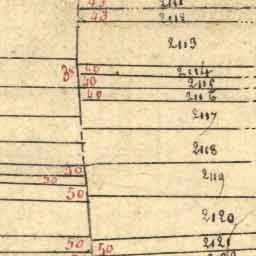 43 2111
43 2112
2113
3n 40 2114
40 2115
40 2116
2117
2118
50
50 2119
50
2120
50 50 2121